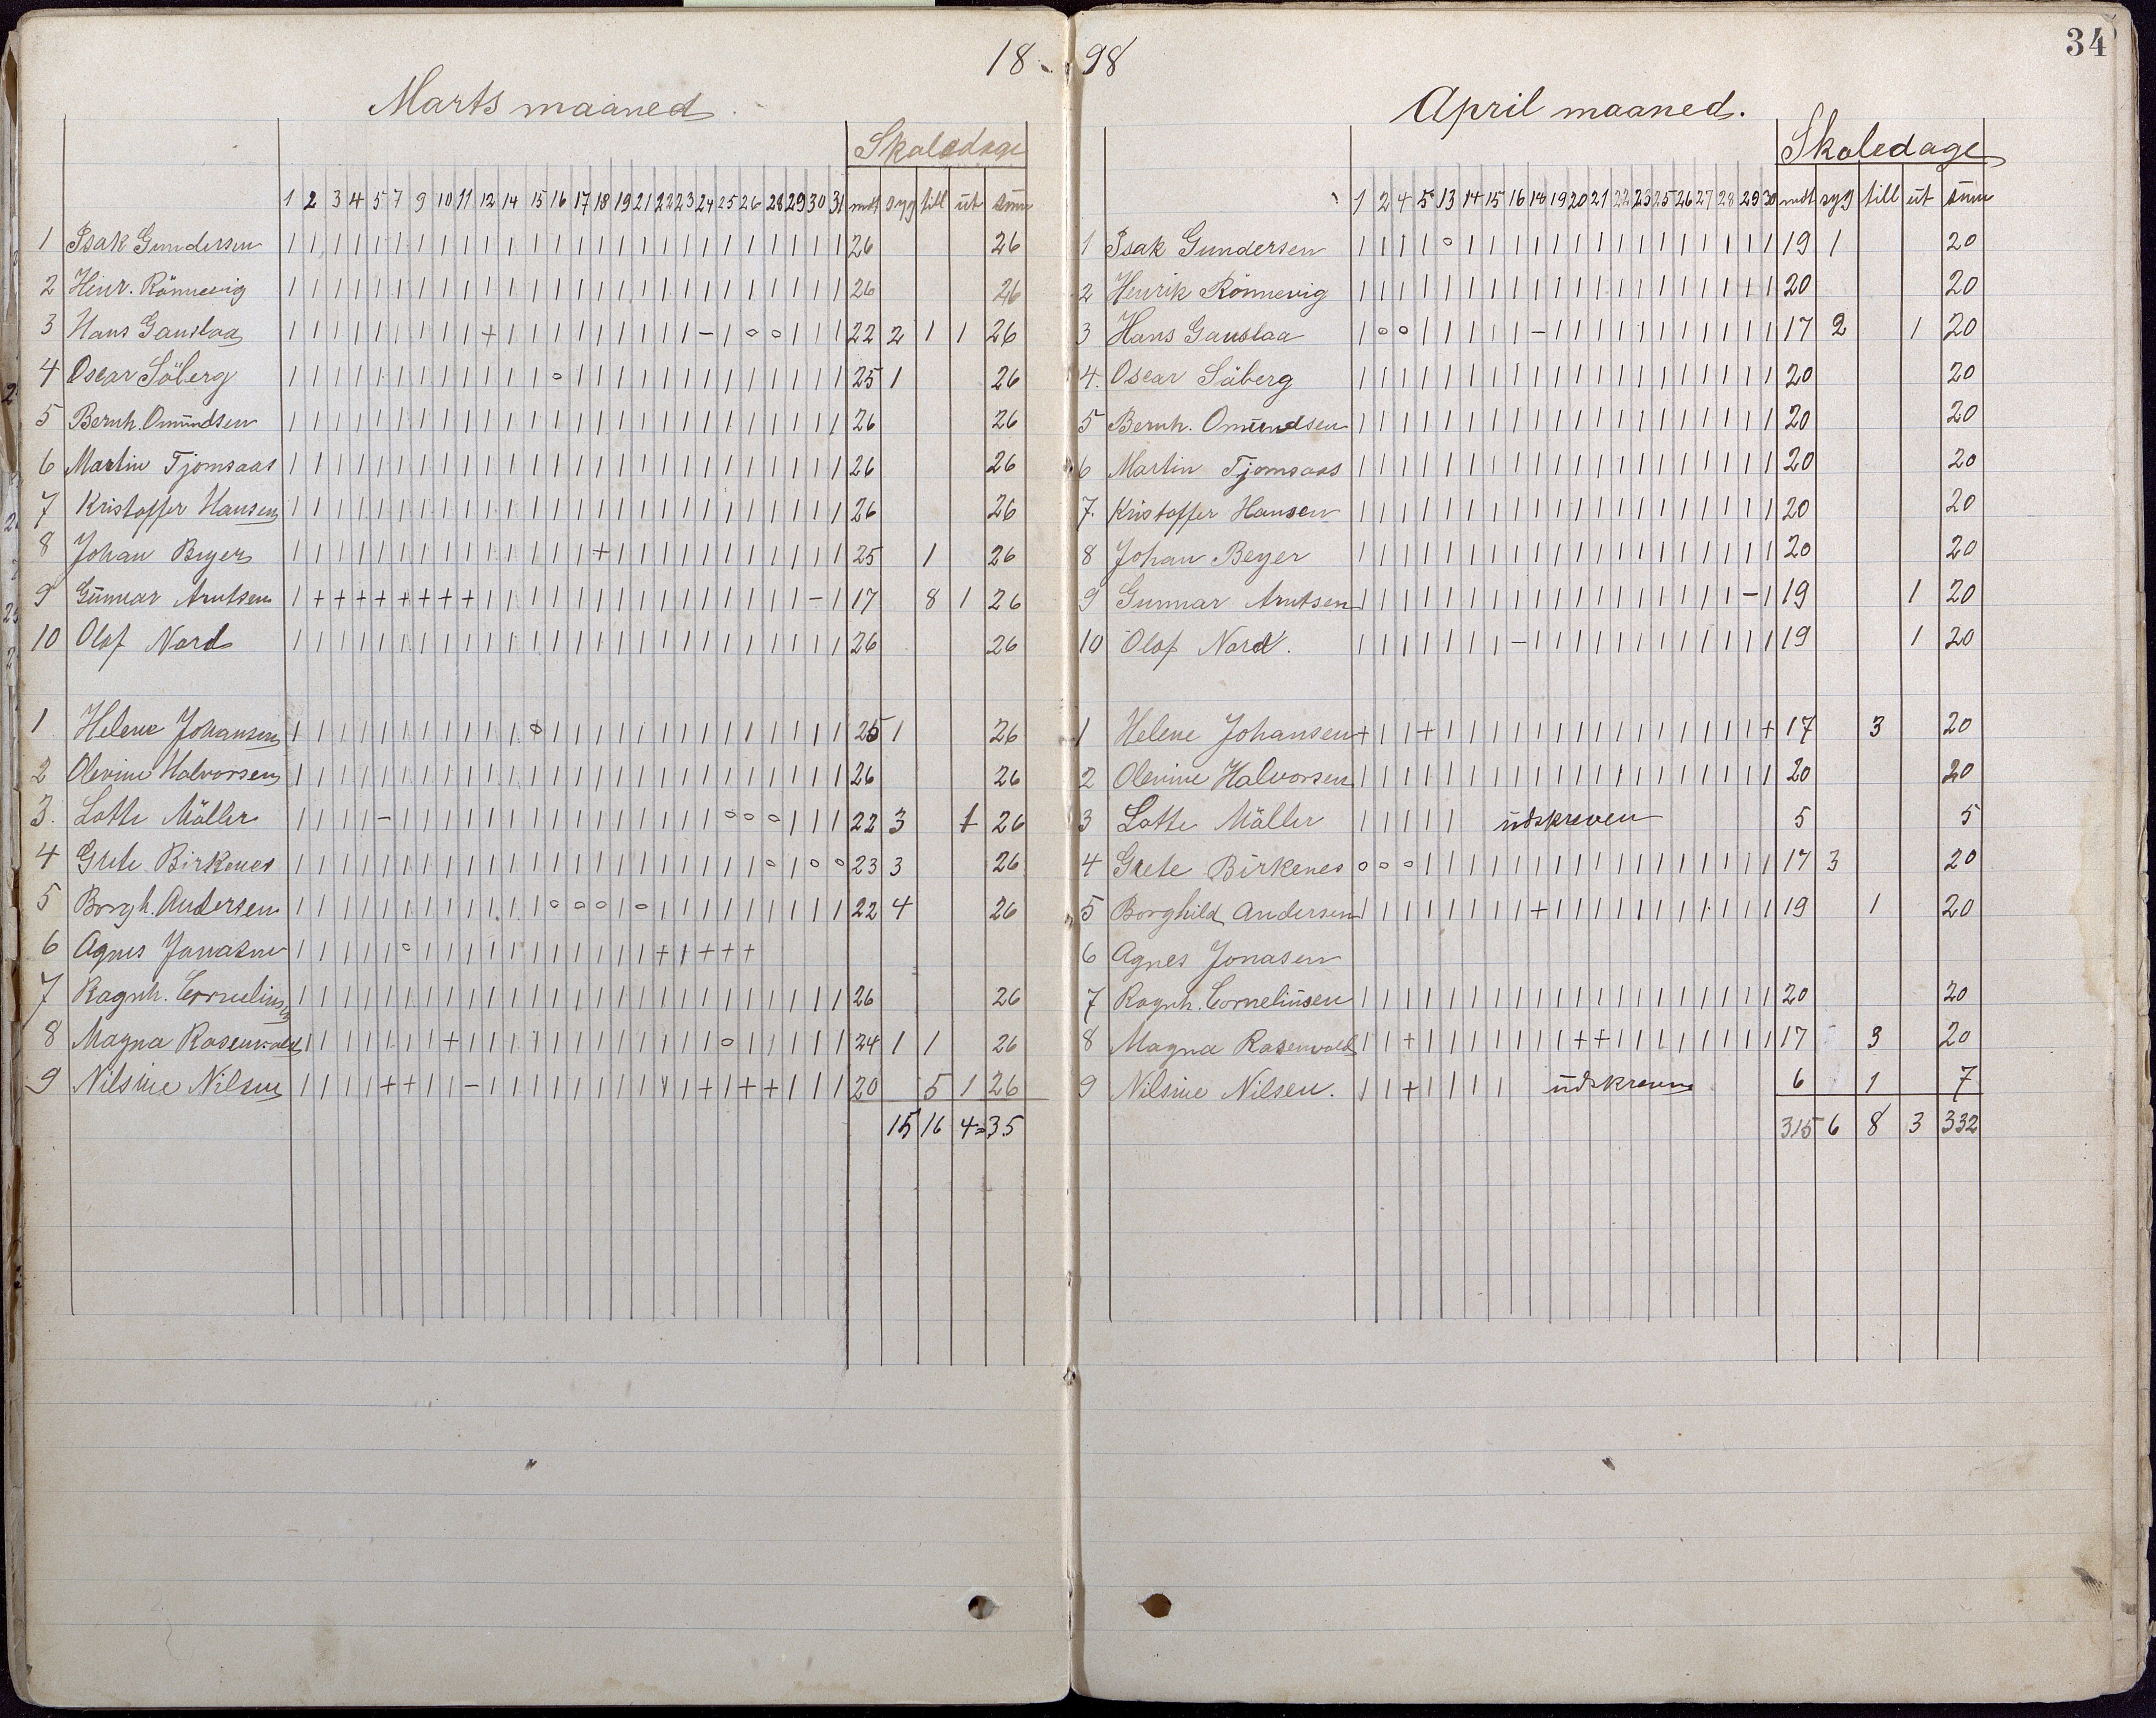 18-98
34
Marts maaned.
Skoledage
1 2 3 4 5 7 9 10 11 12 14 15 16 17 18 19 21 22 23 24 25 26 28 29 30 31 mdt syg till ut sum
1 Isak Gundersen 1 1 1 1 1 1 1 1 1 1 1 1 1 1 1 1 1 1 1 1 1 1 1 1 1 1 26 26
2 Henr. Rönnevig 1 1 1 1 1 1 1 1 1 1 1 1 1 1 1 1 1 1 1 1 1 1 1 1 1 1 26 26
3 Hans Gauslaa 1 1 1 1 1 1 1 1 1 + 1 1 1 1 1 1 1 1 1 - 1 o o 1 1 1 22 2 1 1 26
4 Oscar Söberg 1 1 1 1 1 1 1 1 1 1 1 1 o 1 1 1 1 1 1 1 1 1 1 1 1 1 25 1 26
5 Bernh. Omundsen 1 1 1 1 1 1 1 1 1 1 1 1 1 1 1 1 1 1 1 1 1 1 1 1 1 1 26 26
6 Martin Tjomsaas 1 1 1 1 1 1 1 1 1 1 1 1 1 1 1 1 1 1 1 1 1 1 1 1 1 1 26 26
7 Kristoffer Hansen 1 1 1 1 1 1 1 1 1 1 1 1 1 1 1 1 1 1 1 1 1 1 1 1 1 1 26 26
8 Johan Beyer 1 1 1 1 1 1 1 1 1 1 1 1 1 1 + 1 1 1 1 1 1 1 1 1 1 1 25 1 26
9 Gunnar Arntsen 1 + + + + + + + + 1 1 1 1 1 1 1 1 1 1 1 1 1 1 1 - 1 17 8 1 26
10 Olaf Nord 1 1 1 1 1 1 1 1 1 1 1 1 1 1 1 1 1 1 1 1 1 1 1 1 1 1 26 26
1 Helene Johansen 1 1 1 1 1 1 1 1 1 1 1 o 1 1 1 1 1 1 1 1 1 1 1 1 1 1 25 1 26
2 Olevine Halvorsen 1 1 1 1 1 1 1 1 1 1 1 1 1 1 1 1 1 1 1 1 1 1 1 1 1 1 26 26
3. Lotte Möller 1 1 1 1 - 1 1 1 1 1 1 1 1 1 1 1 1 1 1 1 o o o 1 1 1 22 3 1 26
4 Grete Birkenes 1 1 1 1 1 1 1 1 1 1 1 1 1 1 1 1 1 1 1 1 1 1 o 1 o o 23 3 26
5 Borgh. Andersen 1 1 1 1 1 1 1 1 1 1 1 1 o o o 1 o 1 1 1 1 1 1 1 1 1 22 4 26
6 Agnes Jonasen 1 1 1 1 1 o 1 1 1 1 1 1 1 1 1 1 1 + 1 + + +
7 Ragnh. Corneliusen 1 1 1 1 1 1 1 1 1 1 1 1 1 1 1 1 1 1 1 1 1 1 1 1 1 1 26 26
8 Magna Rosenvold 1 1 1 1 1 1 1 + 1 1 1 1 1 1 1 1 1 1 1 1 o 1 1 1 1 1 24 1 1 26
9 Nilsine Nilsen 1 1 1 1 + + 1 1 - 1 1 1 1 1 1 1 1 1 1 + 1 + + 1 1 1 20 5 1 26
15 16 4=35
April maaned.
Skoledage
1 2 4 5 13 14 15 16 18 19 20 21 22 23 25 26 27 28 29 30 mdt syg till ut sum
1 Isak Gundersen 1 1 1 1 o 1 1 1 1 1 1 1 1 1 1 1 1 1 1 1 19 1 20
2 Henrik Rönnevig 1 1 1 1 1 1 1 1 1 1 1 1 1 1 1 1 1 1 1 1 20 20
3 Hans Gauslaa 1 o o 1 1 1 1 1 - 1 1 1 1 1 1 1 1 1 1 1 17 2 1 20
4. Oscar Söberg 1 1 1 1 1 1 1 1 1 1 1 1 1 1 1 1 1 1 1 1 20 20
5 Bernh. Omundsen 1 1 1 1 1 1 1 1 1 1 1 1 1 1 1 1 1 1 1 1 20 20
6 Martin Tjomsaas 1 1 1 1 1 1 1 1 1 1 1 1 1 1 1 1 1 1 1 1 20 20
7. Kristoffer Hansen 1 1 1 1 1 1 1 1 1 1 1 1 1 1 1 1 1 1 1 1 20 20
8 Johan Beyer 1 1 1 1 1 1 1 1 1 1 1 1 1 1 1 1 1 1 1 1 20 20
9 Gunnar Arntsen 1 1 1 1 1 1 1 1 1 1 1 1 1 1 1 1 1 1 - 1 19 1 20
10 Olaf Nord. 1 1 1 1 1 1 1 - 1 1 1 1 1 1 1 1 1 1 1 1 19 1 20
1 Helene Johansen + 1 1 + 1 1 1 1 1 1 1 1 1 1 1 1 1 1 1 + 17 3 20
2 Olevine Halvorsen 1 1 1 1 1 1 1 1 1 1 1 1 1 1 1 1 1 1 1 1 20 20
3 Lotte Möller 1 1 1 1 1 udskreven 5 5
4 Grete Birkenes o o o 1 1 1 1 1 1 1 1 1 1 1 1 1 1 1 1 1 17 3 20
5 Borghild Andersen 1 1 1 1 1 1 1 1 + 1 1 1 1 1 1 1 1 1 1 1 19 1 20
6 Agnes Jonasen
7 Ragnh. Corneliusen 1 1 1 1 1 1 1 1 1 1 1 1 1 1 1 1 1 1 1 1 20 20
8 Magna Rosenvold 1 1 + 1 1 1 1 1 1 1 + + 1 1 1 1 1 1 1 1 17 3 20
9 Nilsine Nilsen. 1 1 + 1 1 1 1 udskreven 6 1 7
315 6 8 3 332